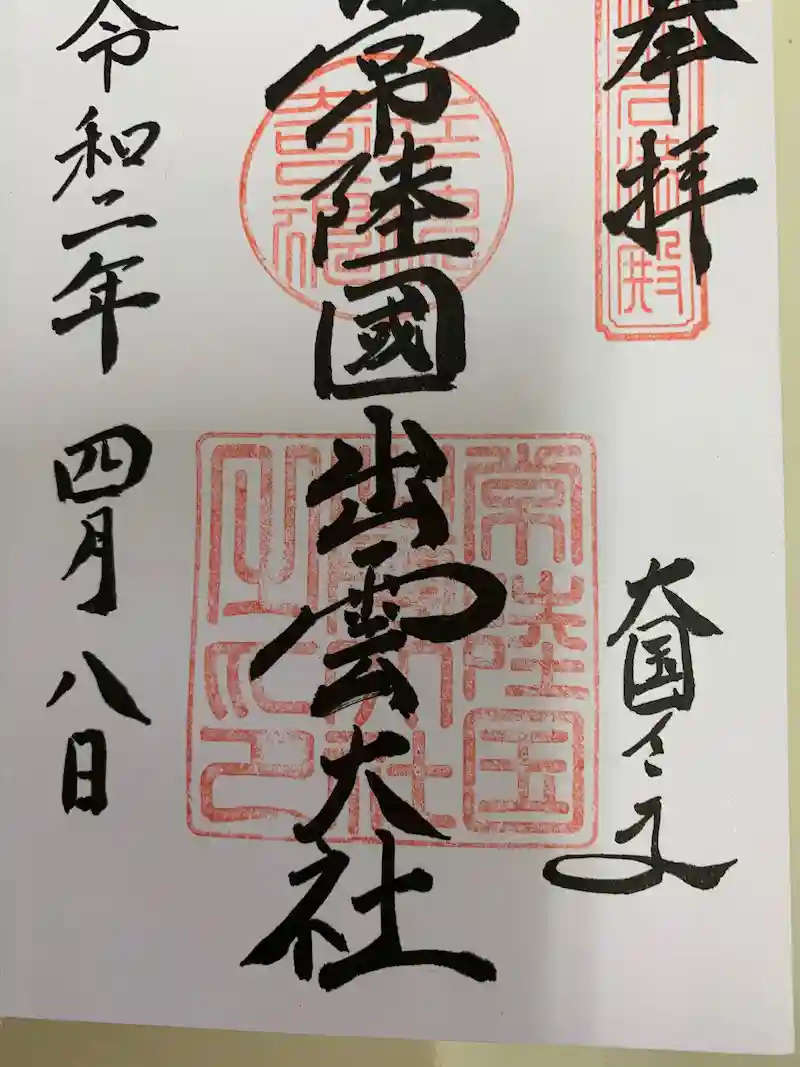 奉拝
大国
常陸國出雲大社
令和二年 四月八日
常陸国
出雲大社
之印